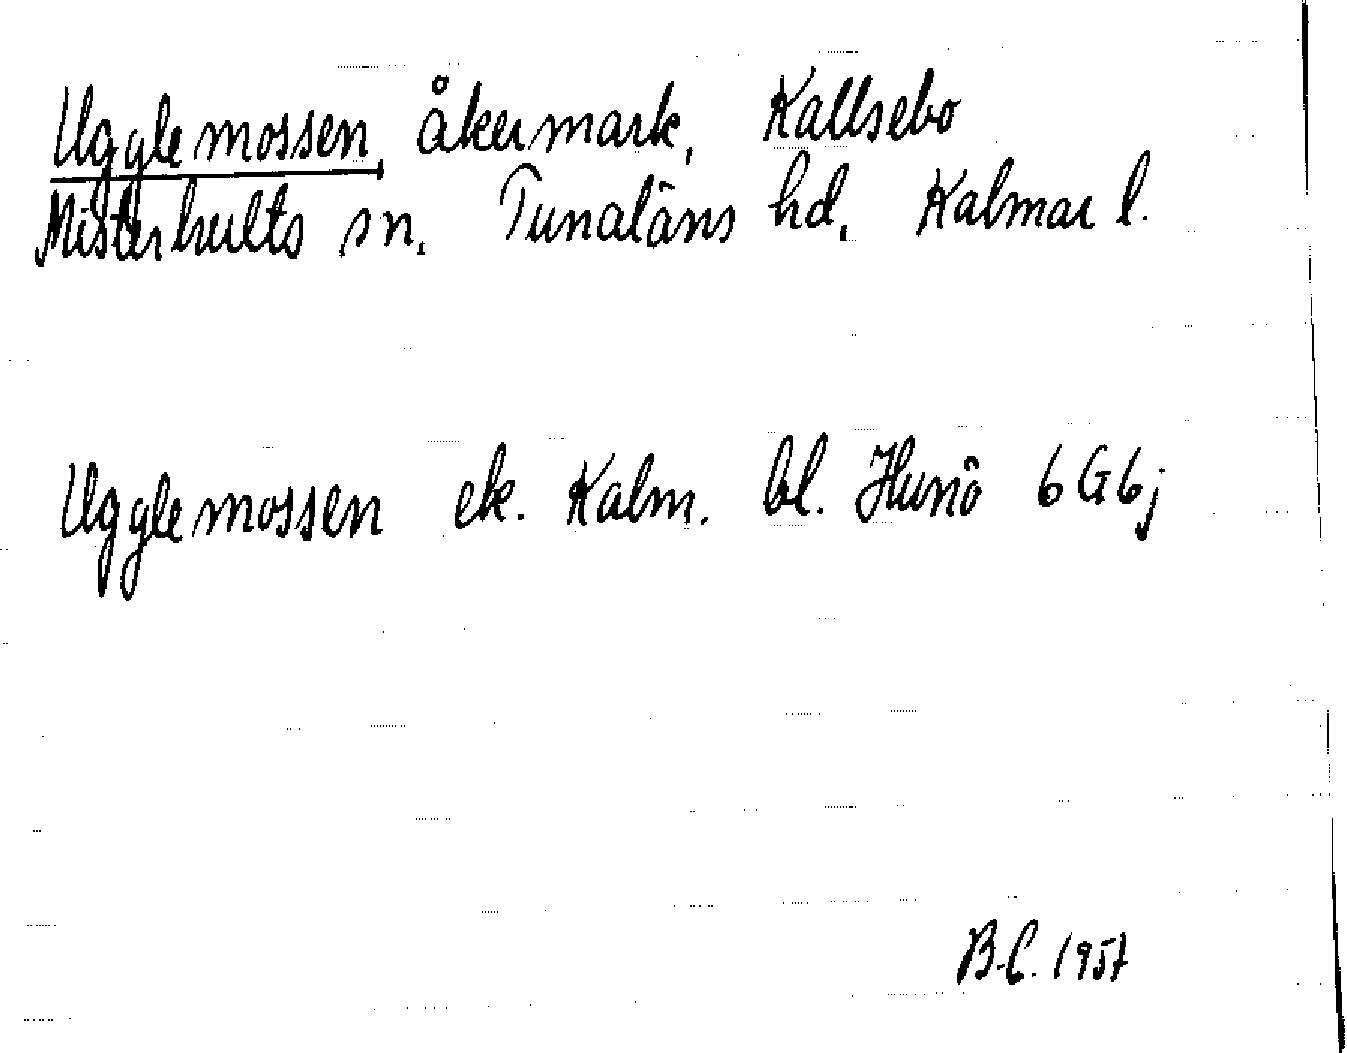 Ugglemossen, åkermark, Kallsebo
Misterhults sn. Tunaläns hd. Kalmar l.
Ugglemossen ek. Kalm. bl. Hunö 6G6j
B-C. 1957